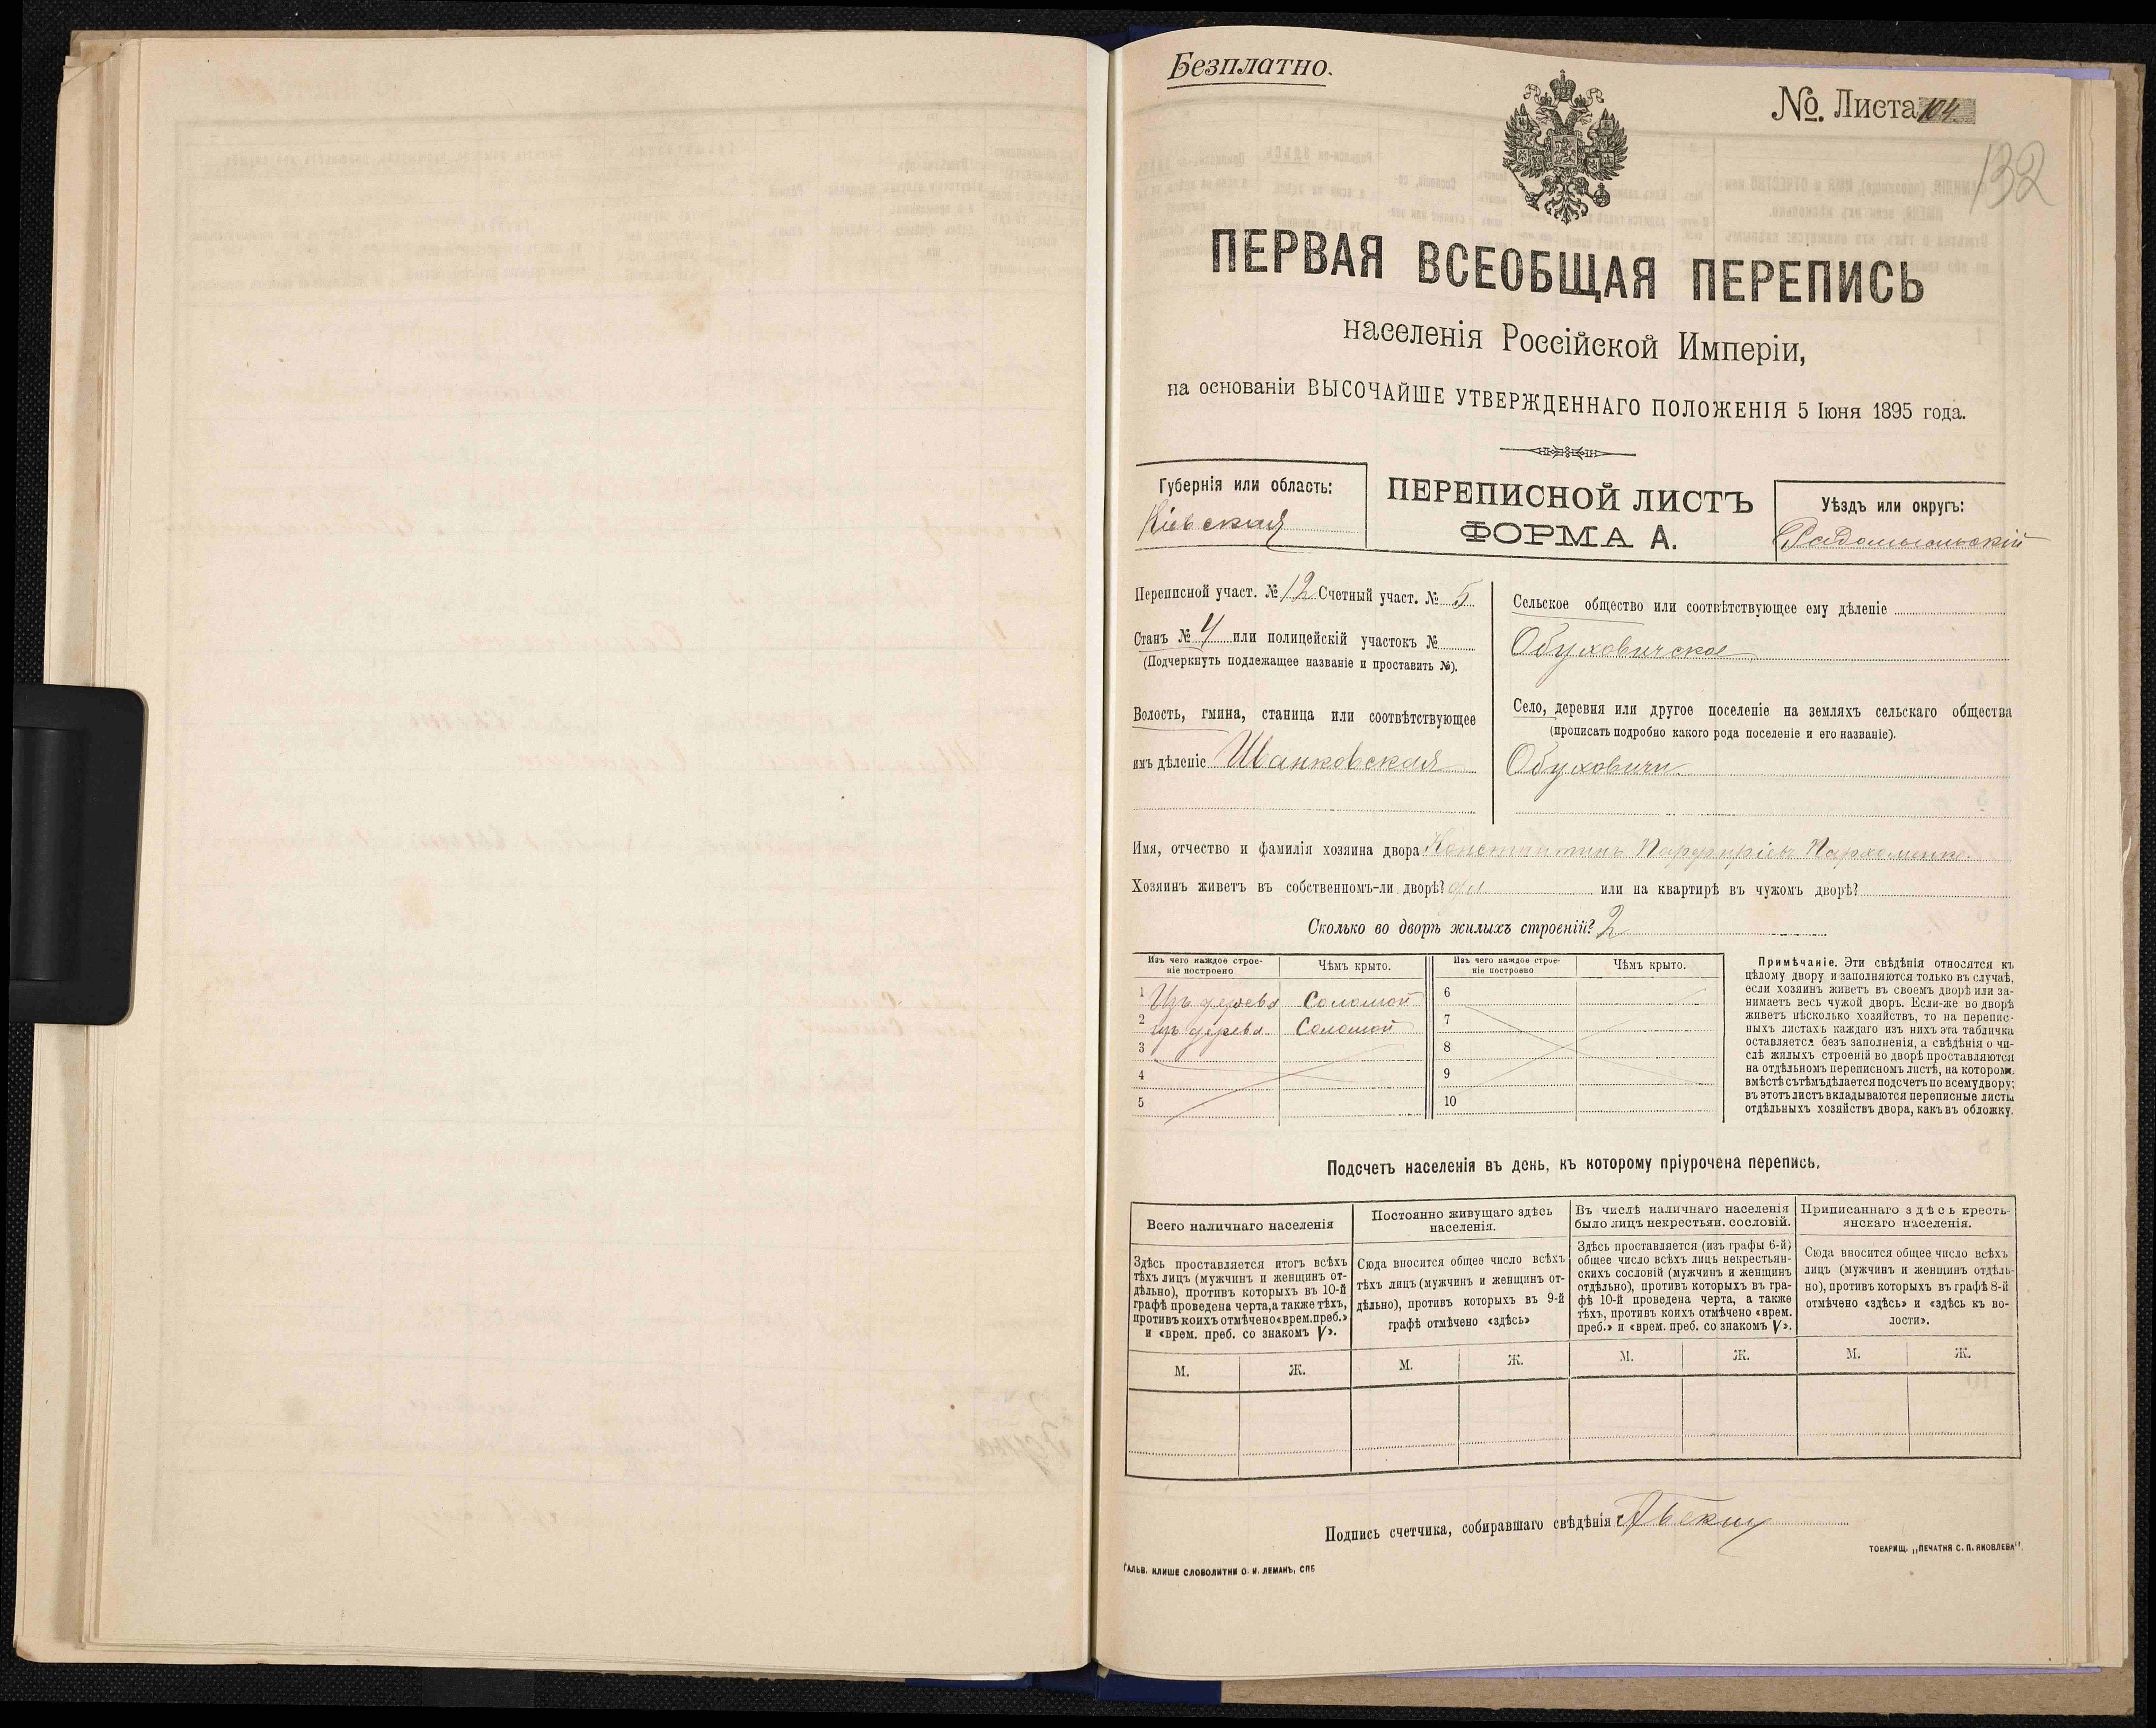 Безплатно.
№. Листа 104.
132
ПЕРВАЯ ВСЕОБЩАЯ ПЕРЕПИСЬ
населенія Россійской Имперіи,
на основаніи ВЫСОЧАЙШЕ УТВЕРЖДЕННАГО ПОЛОЖЕНІЯ 5 Іюня 1895 года.
Губернія или область:
Кіевская
ПЕРЕПИСНОЙ ЛИСТЪ
ФОРМА А.
Уѣздъ или округъ:
Радомысльскій
Переписной участ. № 12 Счетный участ. № 5
Станъ № 4 или полицейскій участокъ №
(Подчеркнуть подлежащее названіе и проставить №).
Волость, гмина, станица или соотвѣтствующее
имъ дѣленіе Иванковская
Сельское общество или соотвѣтствующее ему дѣленіе
Обуховичское
Село, деревня или другое поселеніе на земляхъ сельскаго общества
(прописать подробно какого рода поселеніе и его названіе).
Обуховичи
Имя, отчество и фамилія хозяина двора Константинъ Парфиріевъ Пархоменко.
Хозяинъ живетъ въ собственномъ-ли дворѣ? да или на квартирѣ въ чужомъ дворѣ?
Сколько во дворѣ жилыхъ строеній? 2
Изъ чего каждое строе-
ніе построено
Чѣмъ крыто.
Изъ чего каждое строе-
ніе построено
Чѣмъ крыто.
1 Изъ дерева Соломой
2 изъ дерева Соломой
3
4
5
6
7
8
9
10
Примѣчаніе. Эти свѣдѣнія относятся къ
цѣлому двору и заполняются только въ случаѣ,
если хозяинъ живетъ въ своемъ дворѣ или за-
нимаетъ весь чужой дворъ. Если-же во дворѣ
живетъ нѣсколько хозяйствъ, то на перепис-
ныхъ листахъ каждаго изъ нихъ эта табличка
оставляется безъ заполненія, а свѣдѣнія о чи-
слѣ жилыхъ строеній во дворѣ проставляются
на отдѣльномъ переписномъ листѣ, на которомъ
вмѣстѣ съ тѣмъ дѣлается подсчетъ по всему двору;
въ этотъ листъ вкладываются переписные листы
отдѣльныхъ хозяйствъ двора, какъ въ обложку.
Подсчетъ населенія въ день, къ которому пріурочена перепись.
Всего наличнаго населенія
Здѣсь проставляется итогъ всѣхъ
тѣхъ лицъ (мужчинъ и женщинъ от-
дѣльно), противъ которыхъ въ 10-й
графѣ проведена черта, а также тѣхъ,
противъ коихъ отмѣчено «врем. преб.»
и «врем. преб. со знакомъ V».
Постоянно живущаго здѣсь
населенія.
Сюда вносится общее число всѣхъ
тѣхъ лицъ (мужчинъ и женщинъ от-
дѣльно), противъ которыхъ въ 9-й
графѣ отмѣчено «здѣсь»
Въ числѣ наличнаго населенія
было лицъ некрестьян. сословій.
Здѣсь проставляется (изъ графы 6-й)
общее число всѣхъ лицъ некрестьян-
скихъ сословій (мужчинъ и женщинъ
отдѣльно), противъ которыхъ въ гра-
фѣ 10-й проведена черта, а также
тѣхъ, противъ коихъ отмѣчено «врем.
преб.» и «врем. преб. со знакомъ V».
Приписаннаго здѣсь кресть-
янскаго населенія.
Сюда вносится общее число всѣхъ
лицъ (мужчинъ и женщинъ отдѣль-
но), противъ которыхъ въ графѣ 8-й
отмѣчено «здѣсь» и «здѣсь къ во-
лости».
М. Ж. М. Ж. М. Ж. М. Ж.
Подпись счетчика, собиравшаго свѣдѣнія
ТОВАРИЩ. „ПЕЧАТНЯ С. П. ЯКОВЛЕВА".
ГАЛЬВ. КЛИШЕ СЛОВОЛИТНИ О. И. ЛЕМАНЪ, СПБ